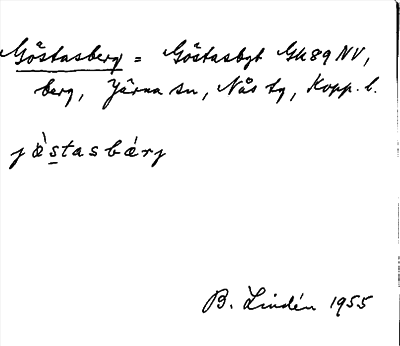 Göstasberg = Göstasbgt Gk89NV,
berg, Järna sn, Nås tg, Kopp. l.
jæ̀stasbǽrj
B. Lindén 1955